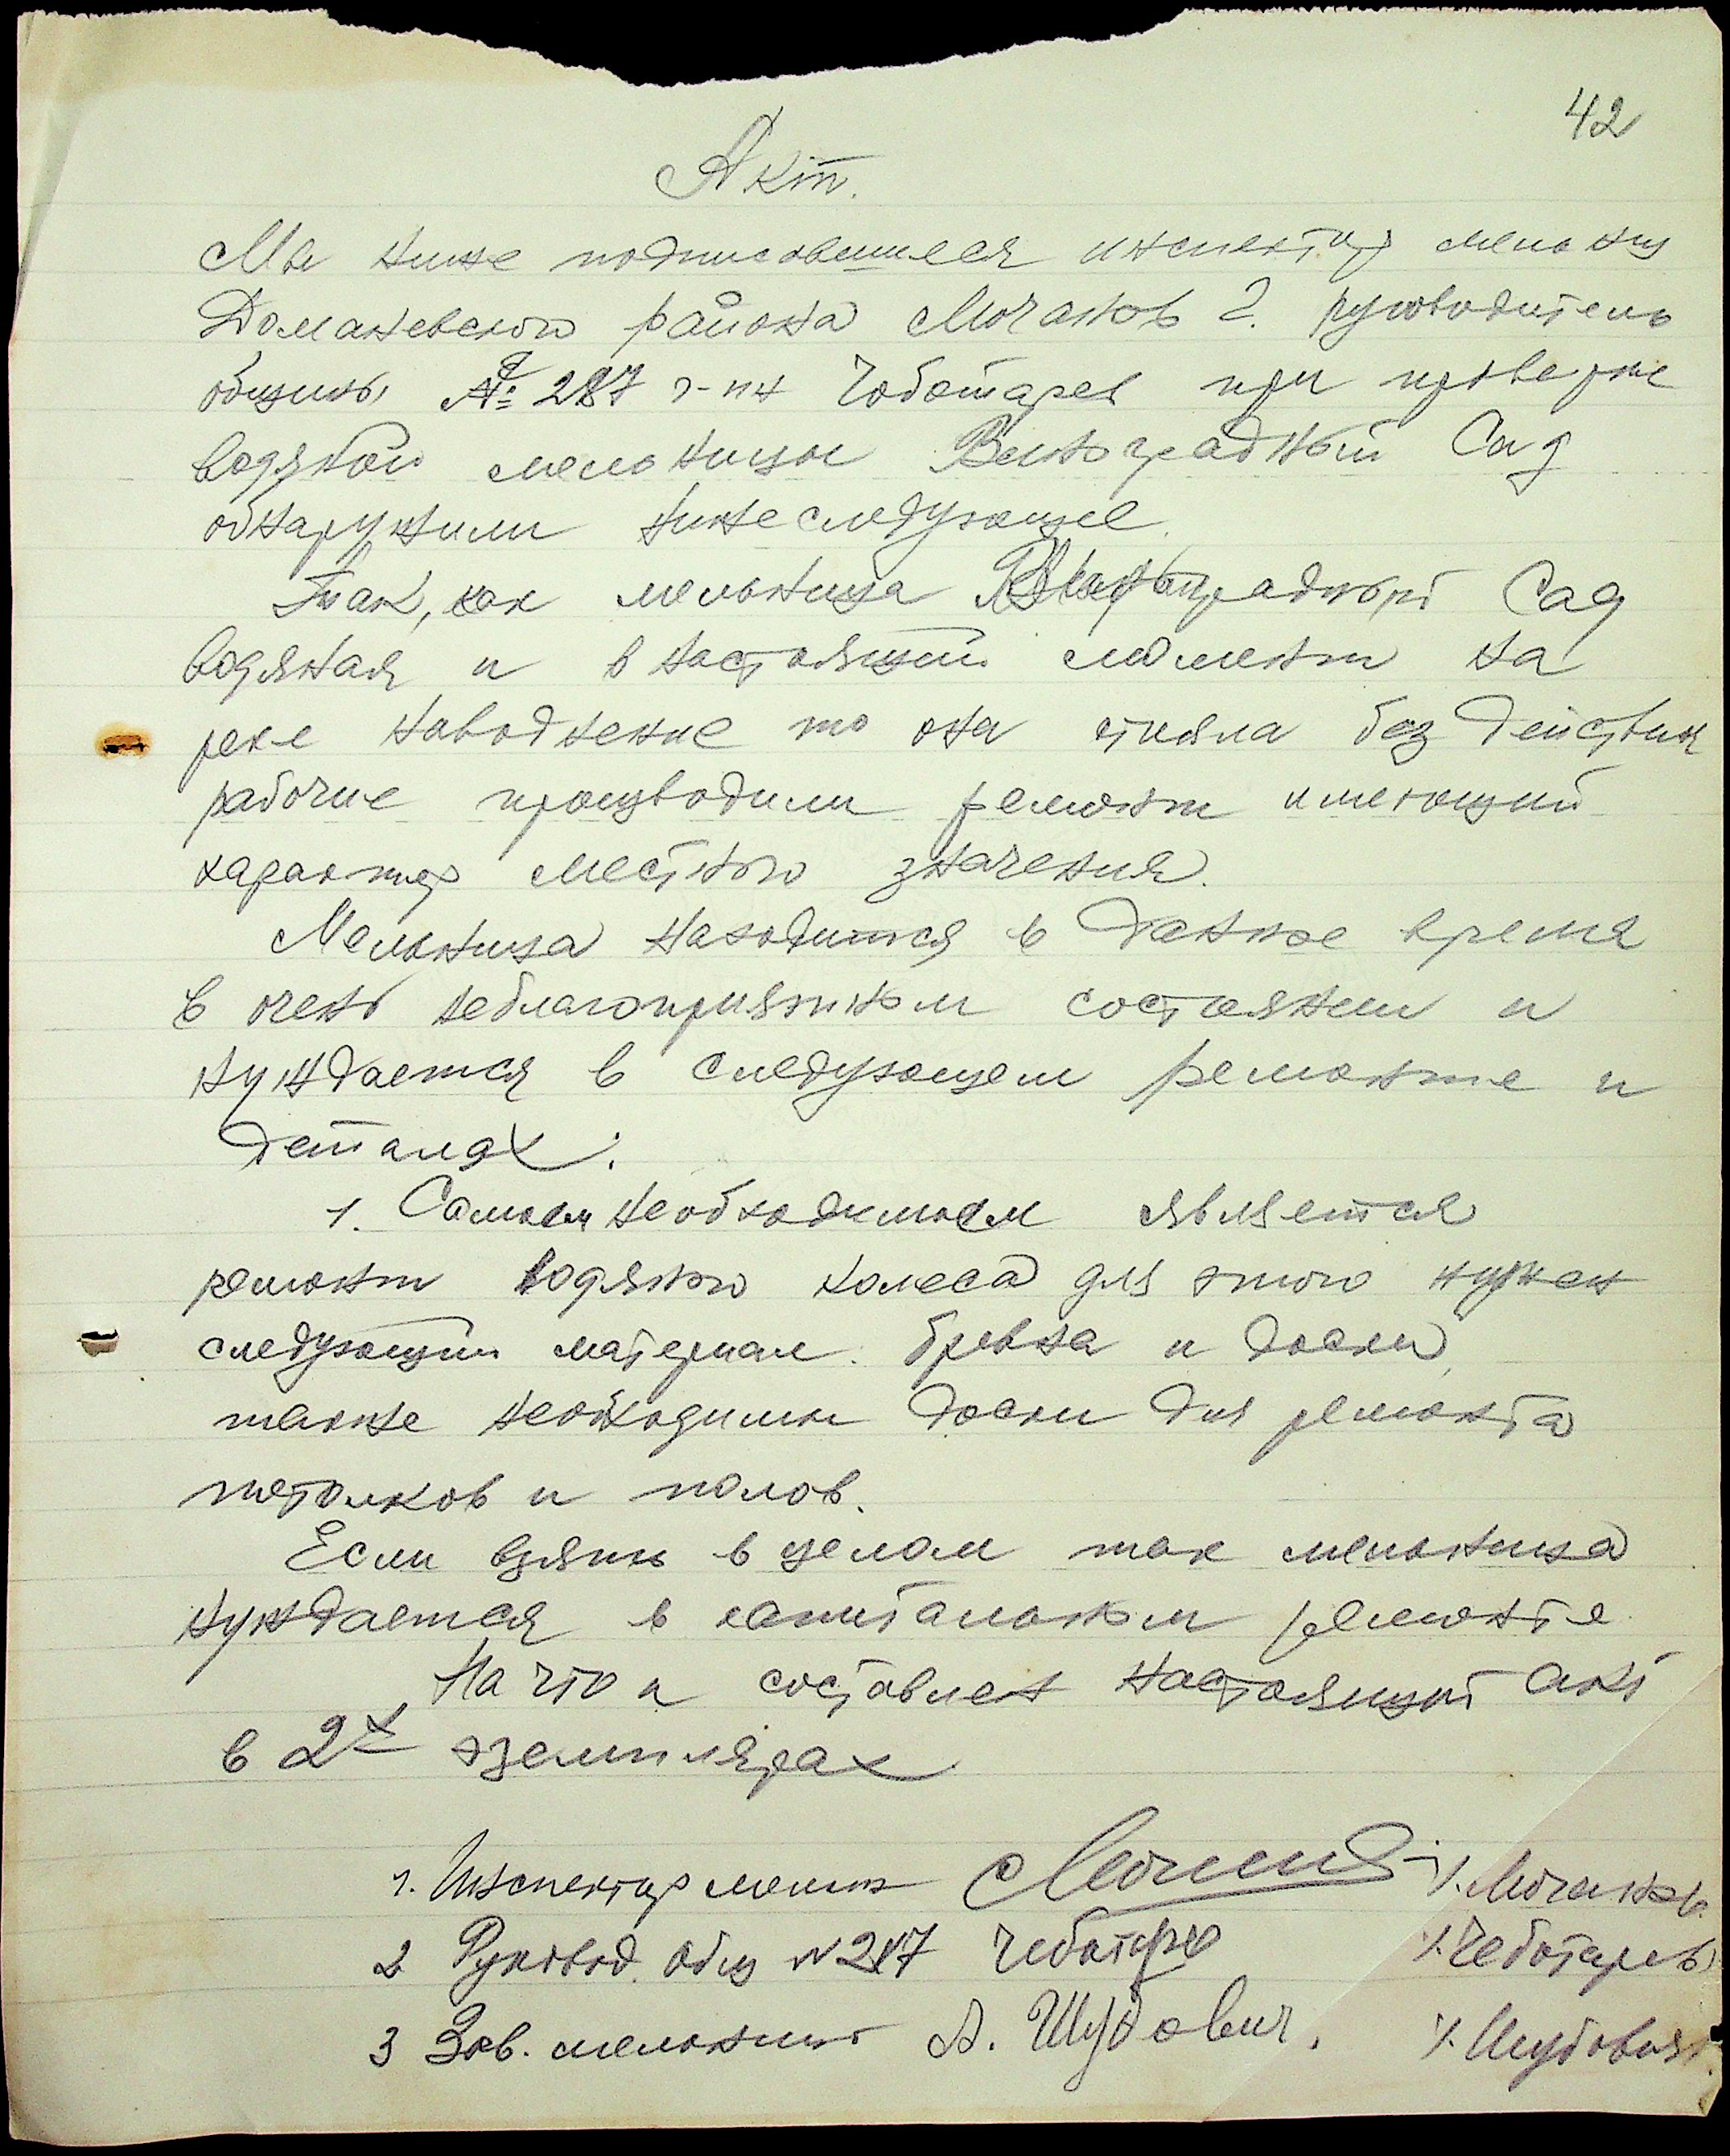 42
Акт.
Мы ниже подписавшиеся инспектор мельниц
Доманевского района Мочанов Г. руководитель
общины № 287 г-ин Чоботарев при проверке
водяной мельницы Виноградный Сад
обнаружили нижеследующее.
Так, как мельница Виноградный Сад
водяная и в настоящий момент на
реке наводнение то она стояла без действия
рабочие производили ремонт имеющий
характер местного значения.
Мельница находится в данное время
в очень неблагоприятном состоянии и
нуждается в следующем ремонте и
деталях:
1. Самым необходимым является
ремонт водяного колеса для этого нужен
следующий материал: бревна и доски,
также необходимы доски для ремонта
потолков и полов.
Если взять в целом так мельница
нуждается в капитальном ремонте
На что и составлен настоящий акт
в 2х эземплярах
1. Инспектор мельн /. Мочанов.
2 Руковод. общ № 287 Чеботарев /. Чеботарев
3 Зав. мельницы А. Шудович. /. Шудович.